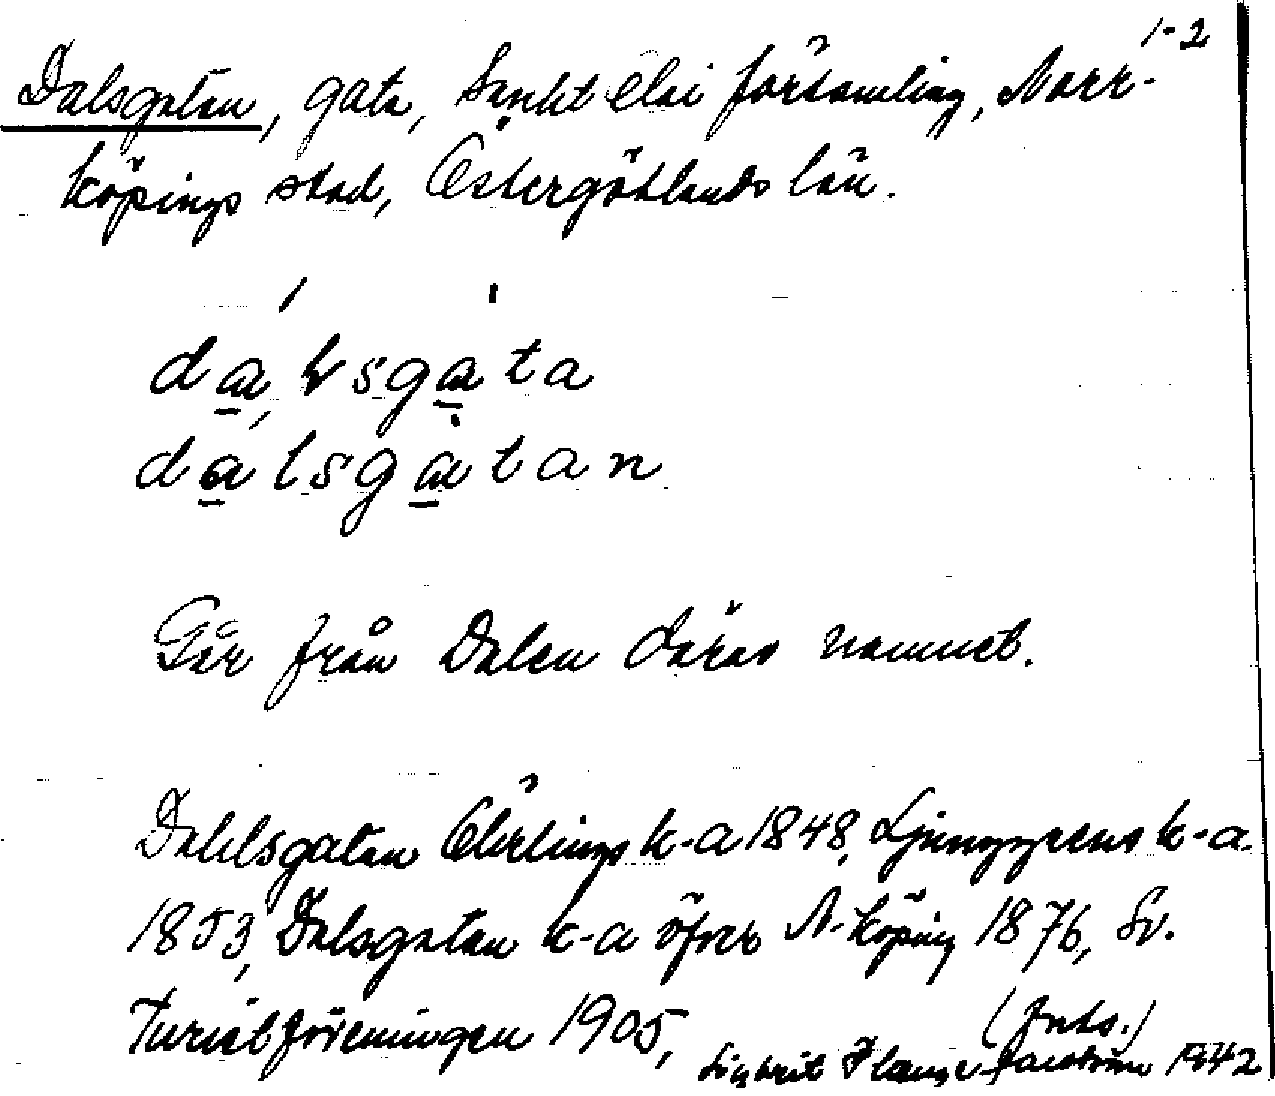 1-2
Dalsgatan, gata, Sankt Olai församling, Norr-
köpings stad, Östergötlands län.
dalsgata
dalsgatan
Går från Dalen därav namnet.
Dahlsgatan Öhrlings k-a 1848, Ljunggrens k-a
1853, Dalsgatan k-a öfver N-köping 1876, Sv.
Turistföreningen 1905,
(forts.)
1942